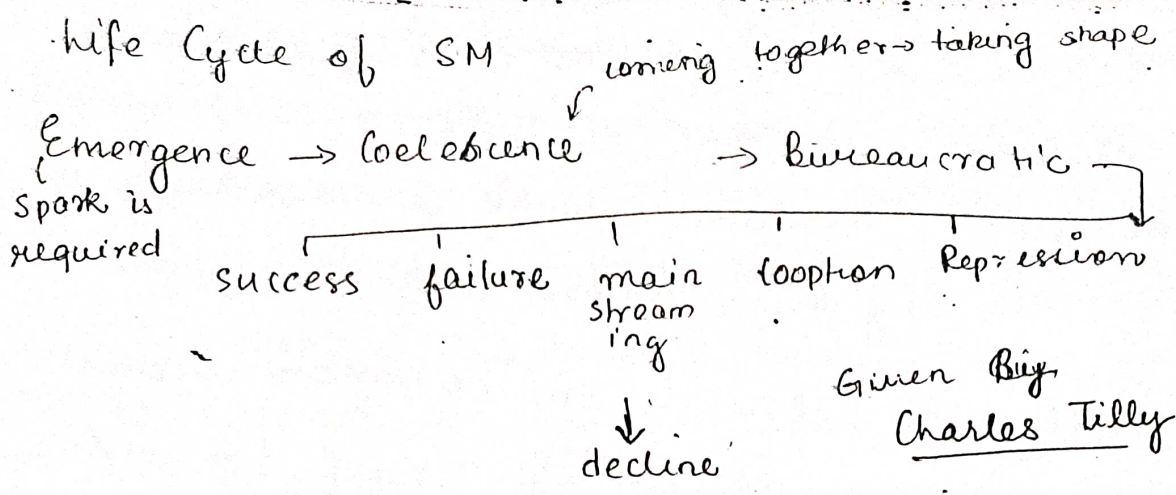 Life Cycle of SM
coming together → taking shape
Emergence → Coelebcence → Bureaucratic
Spark is
required
success failure main cooption Repression
stream
ing
↓
decline
Given By
Charles Tilly